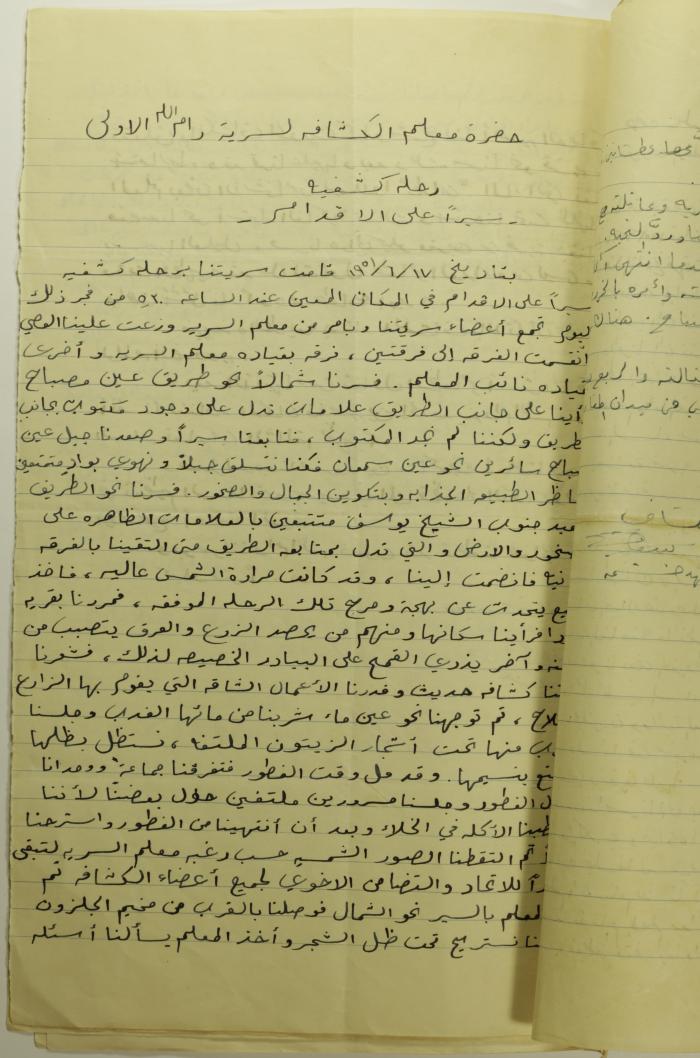 حضرة معلم الكشافه لسرية رام الله الاولى
رحله كشفيه
- سيراً على الاقدام -
بتاريخ ١٧/٦/ قامت سريتنا برحله كشفيه
سيراً على الاقدام في المكان المعين عند الساعه من فجر ذلك
ليوم تجمع أعضاء سريتنا وبامر من معلم السريه وزعت علينا العصي
انقسمت الفرقه إلى فرقتين ، فرقه بقياده معلم السريه وأخرى
قياده نائب المعلم . فسرنا شمالاً نحو طريق عين مصباح
أينا على جانب الطريق علامات تدل على وجود مكتوب بجانب
طريق ولكننا لم نجد المكتوب ، فتابعنا سيراً وصعدنا جبل عين
صباح سائرين نحو عين سمعان فكنا نتسلق جبلاً ونهوي بوادٍ متمتعين
ناظر الطبيعه الجذابه وبتكوين الجبال والصخور . فسرنا نحو الطريق
عبد جنوب الشيخ يوسف متتبعين بالعلامات الظاهره على
صخور والارض والتي تدل بمتابعه الطريق حتى التقينا بالفرقه
نيه فانضمت إلينا ، وقد كانت حرارة الشمس عاليه ، فاخذ
يع يتحدث عن بهجة ومرح تلك الرحله الموفقه ، فمررنا بقريه
فرأينا سكانها ومنهم من يحصد الزرع والعرق يتصبب من
نه وآخر يذري القمح على البيادر الخصيصه لذلك ، فشعرنا
ننا كشافه حديث وقدرنا الأعمال الشاقه التي يقوم بها الزارع
لاح ، ثم توجهنا نحو عين ماء شربنا من مائها العذب وجلسنا
ب منها تحت أشجار الزيتون الملتفه ، نستظل بظلها
تع بنسيمها . وقد حل وقت الفطور فتفرقنا جماعة ووحدانا
ل الفطور وجلسنا مسرورين ملتفين حول بعضنا لأننا
الأكله في الخلاء وبعد أن أنتهينا من الفطور واسترحنا
ثم التقطنا الصور الشمسيه حسب رغبه معلم السريه لتبقى
اً للاتحاد والتضامن الاخوي لجميع أعضاء الكشافه ثم
لمعلم بالسير نحو الشمال فوصلنا بالقرب من مخيم الجلزون
نا نستريح تحت ظل الشجر وأخذ المعلم يسألنا أسئله